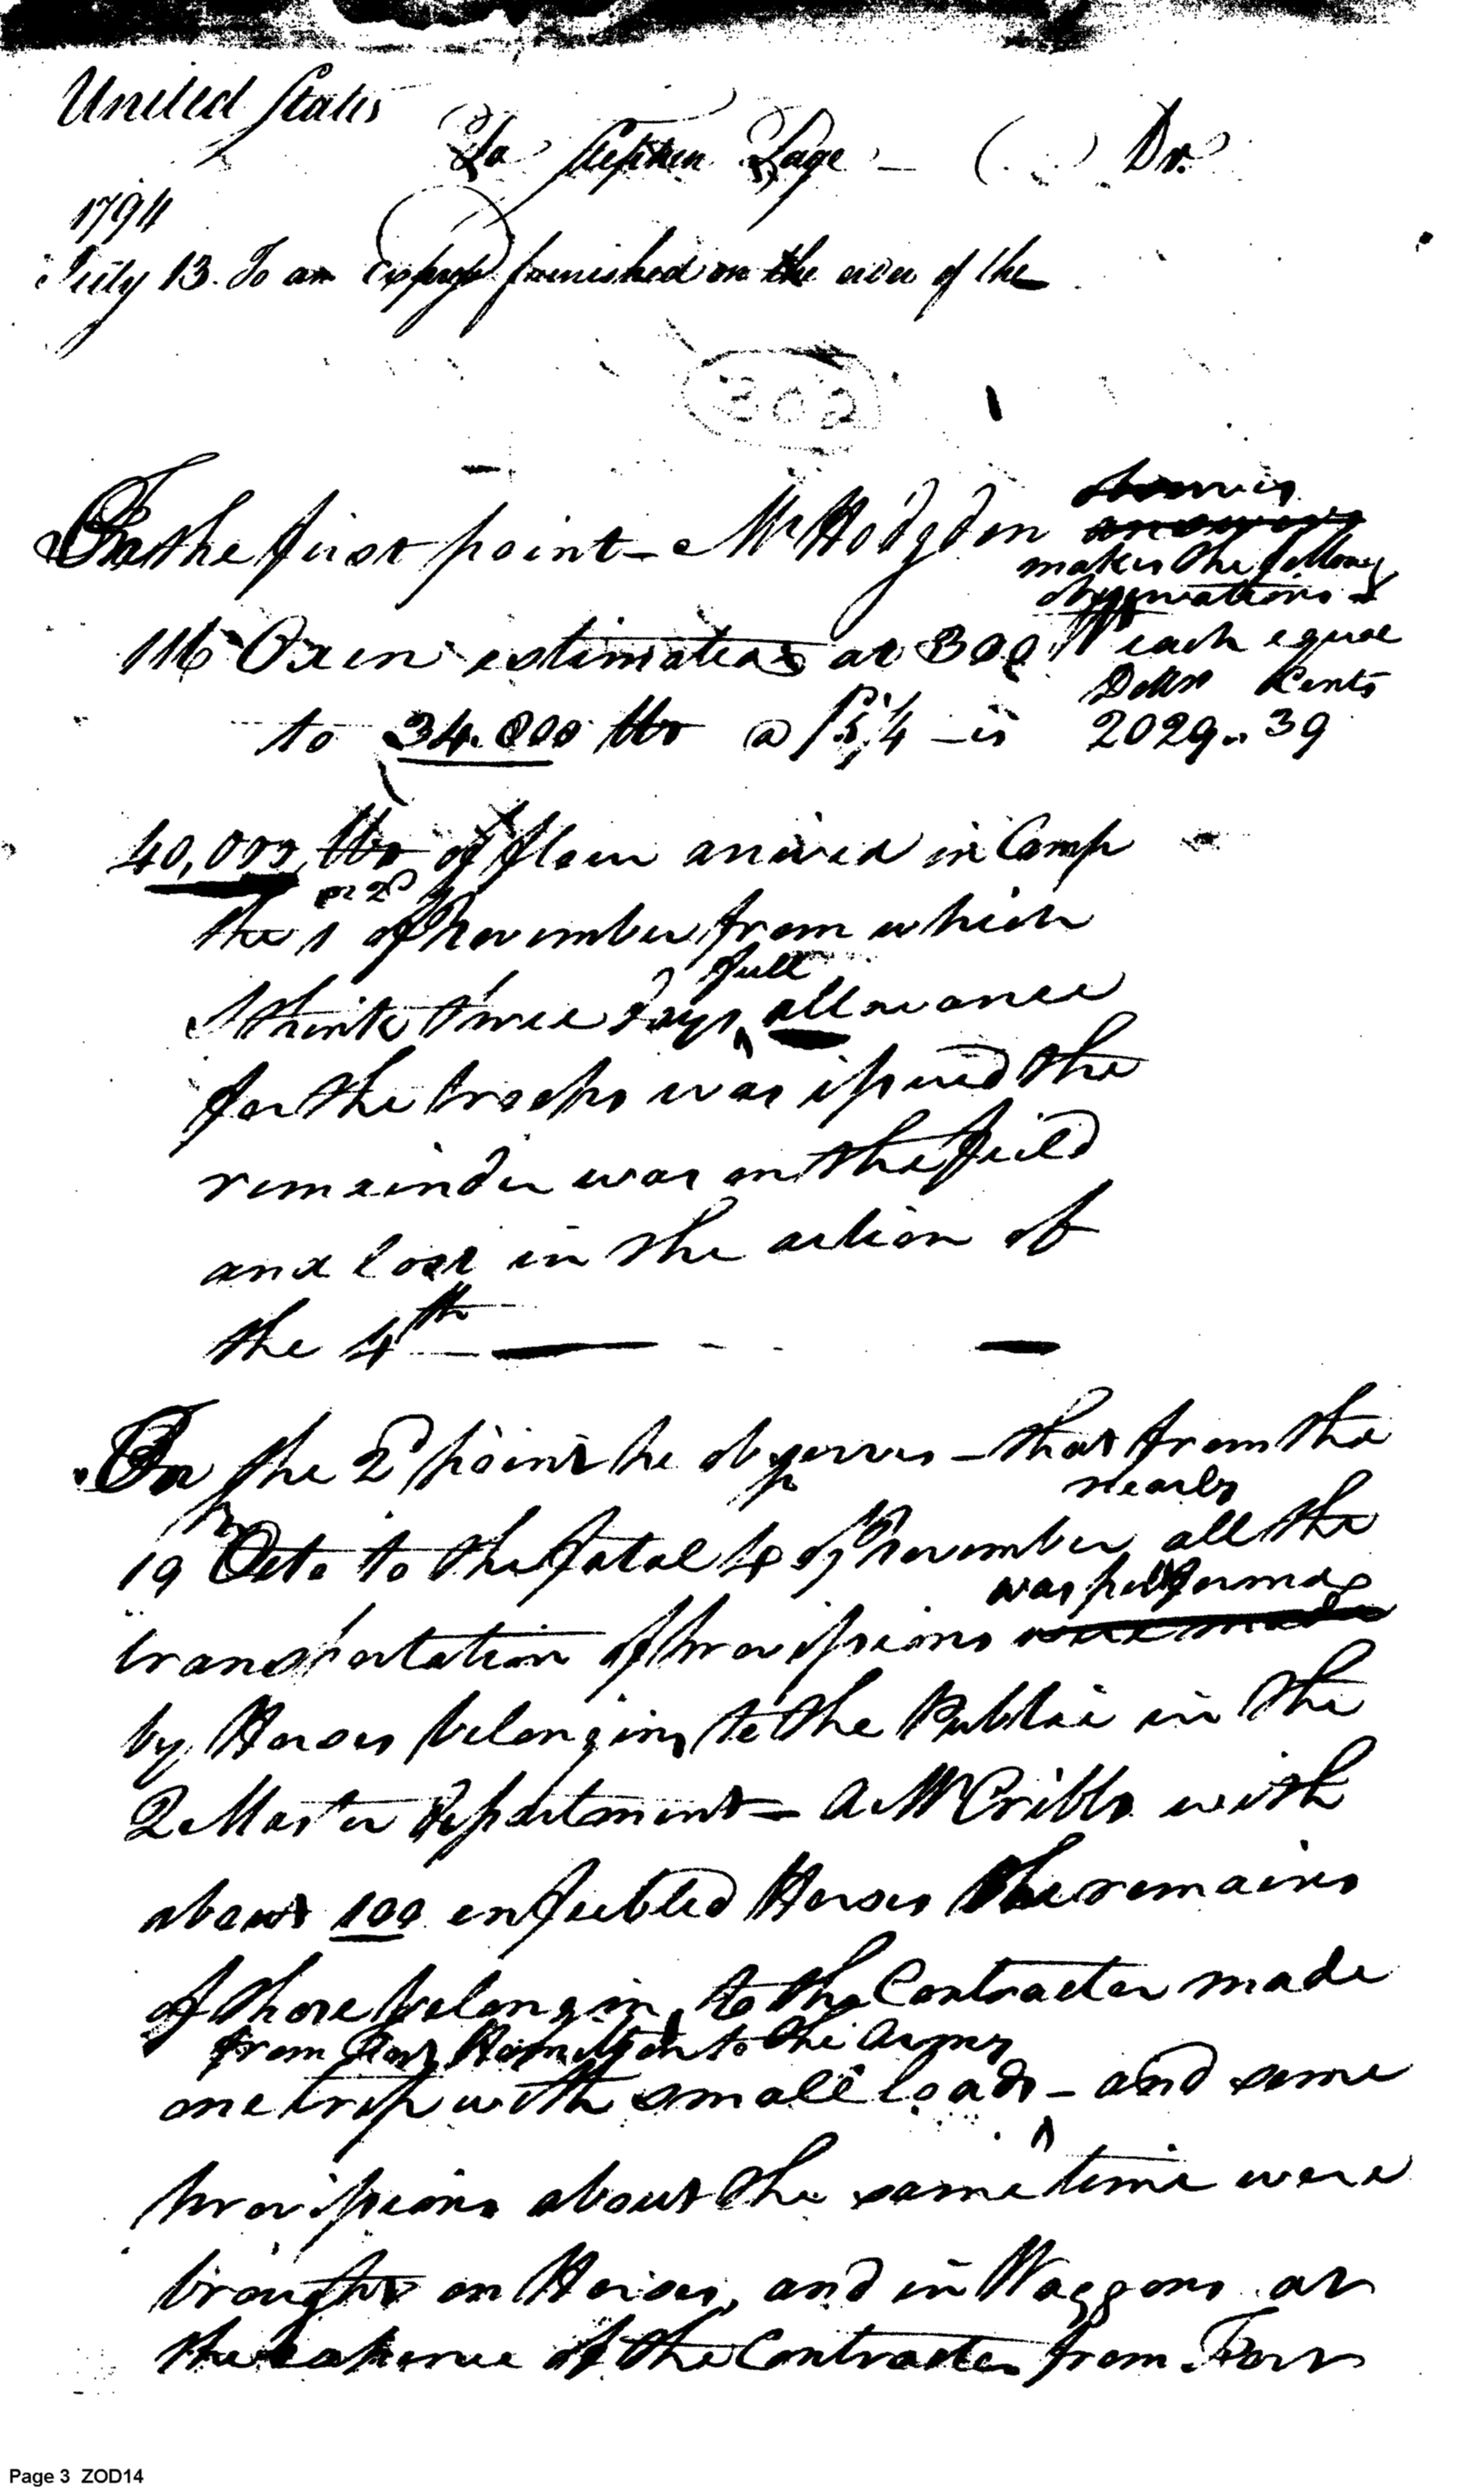 United States
To Stephen Page — Dr.
1794
July 13. To an Express furnished on the order of the
302
On the first point — Mr Hodgdon
makes the following
observations —
116 Oxen estimated at 300 lb each equal
Dollrs Cents
to 34.800 lbs @ 5¼ — is 2029.. 39
40,000 lbs of flour arrived in Camp
or 2d
the 1 of November from which
full
I think three days allowance
for the troops was issued the
remainder was on the feild
and lost in the action of
the 4th —
On the 2d point he observes — that from the
nearly
19 Octo to the fatal 4 of November all the
was performed
transportation of provisions were made
by Horses belonging to the Public in the
QMaster department — A. McCribbs with
about 100 enfeebled Horses the remains
of those belonging to the Contractor made
from Fort Hamilton to the Army
one trip with small loads — and some
provisions about the same time were
brought on Horses, and in Waggons at
the expence of the Contractor from Fort
Page 3 ZOD14